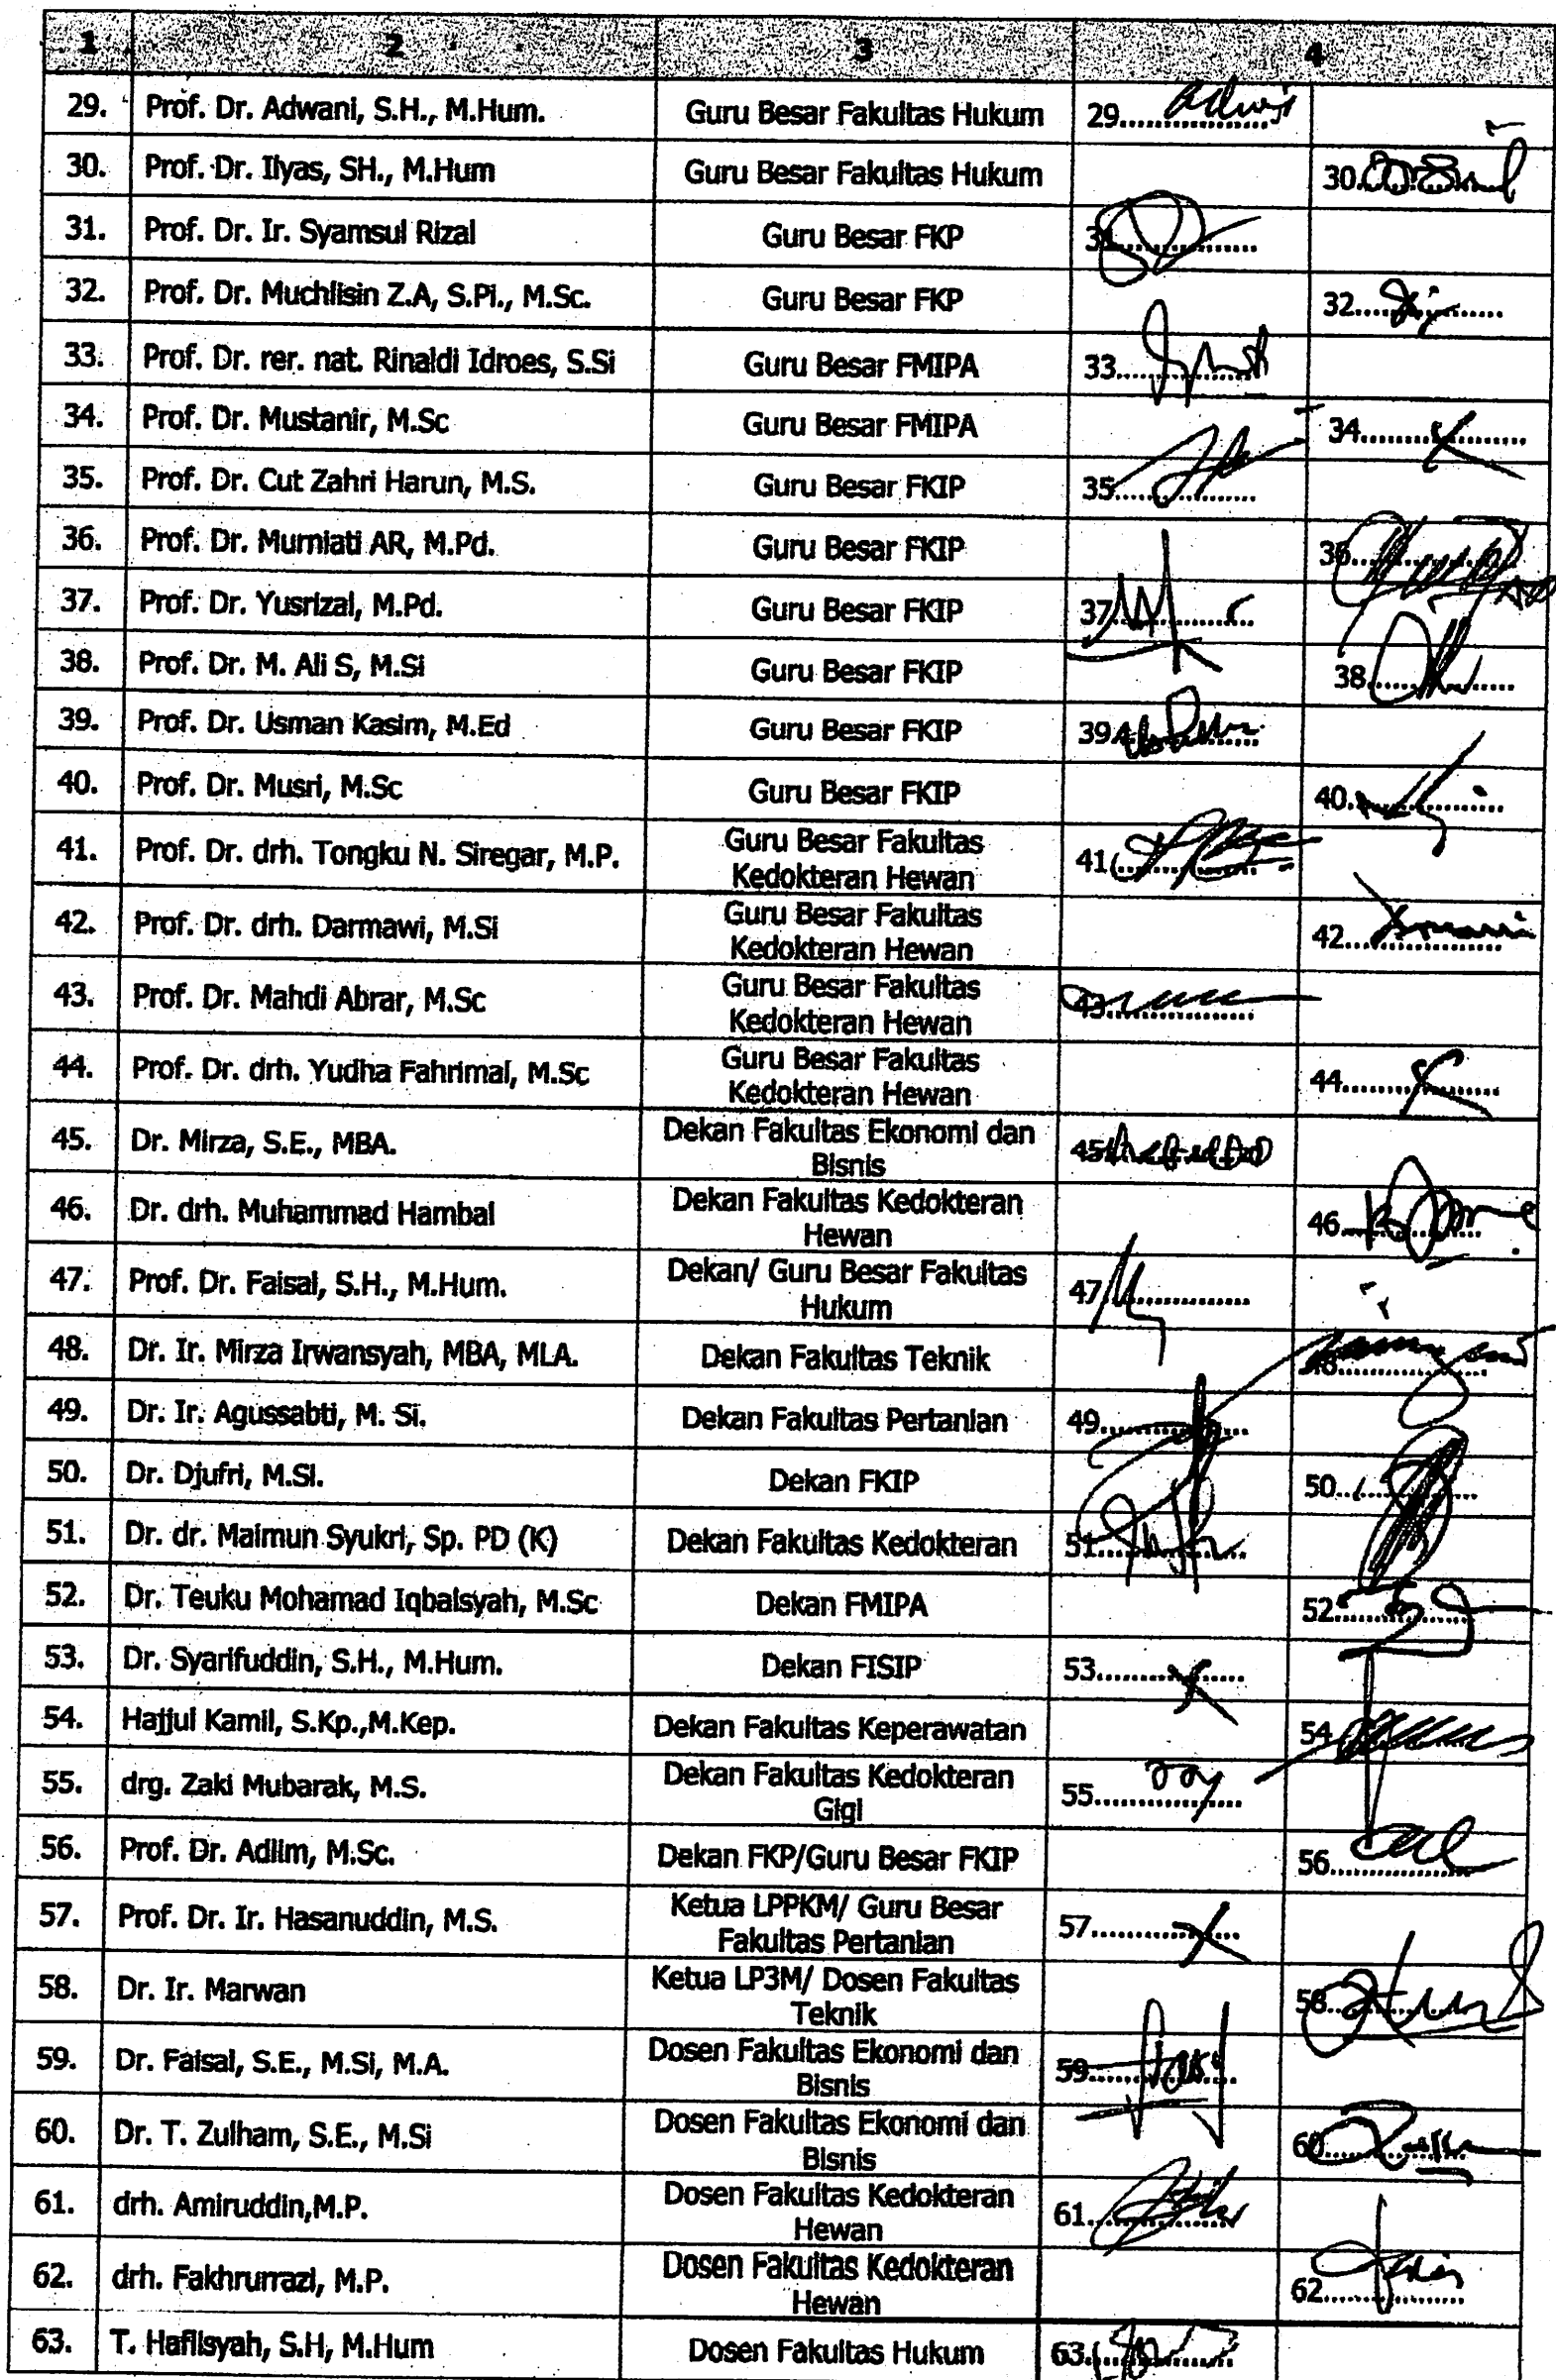 1 2 3 4
29. Prof. Dr. Adwani, S.H., M.Hum. Guru Besar Fakultas Hukum 29..................
30. Prof. Dr. Ilyas, SH., M.Hum Guru Besar Fakultas Hukum 30..................
31. Prof. Dr. Ir. Syamsul Rizal Guru Besar FKP 31..................
32. Prof. Dr. Muchlisin Z.A, S.Pi., M.Sc. Guru Besar FKP 32..................
33. Prof. Dr. rer. nat. Rinaldi Idroes, S.Si Guru Besar FMIPA 33..................
34. Prof. Dr. Mustanir, M.Sc Guru Besar FMIPA 34..................
35. Prof. Dr. Cut Zahri Harun, M.S. Guru Besar FKIP 35..................
36. Prof. Dr. Murniati AR, M.Pd. Guru Besar FKIP 36..................
37. Prof. Dr. Yusrizal, M.Pd. Guru Besar FKIP 37..................
38. Prof. Dr. M. Ali S, M.Si Guru Besar FKIP 38..................
39. Prof. Dr. Usman Kasim, M.Ed Guru Besar FKIP 39..................
40. Prof. Dr. Musri, M.Sc Guru Besar FKIP 40..................
41. Prof. Dr. drh. Tongku N. Siregar, M.P. Guru Besar Fakultas 41..................
Kedokteran Hewan
42. Prof. Dr. drh. Darmawi, M.Si Guru Besar Fakultas 42..................
Kedokteran Hewan
43. Prof. Dr. Mahdi Abrar, M.Sc Guru Besar Fakultas 43..................
Kedokteran Hewan
44. Prof. Dr. drh. Yudha Fahrimal, M.Sc Guru Besar Fakultas 44..................
Kedokteran Hewan
45. Dr. Mirza, S.E., MBA. Dekan Fakultas Ekonomi dan 45..................
Bisnis
46. Dr. drh. Muhammad Hambal Dekan Fakultas Kedokteran 46..................
Hewan
47. Prof. Dr. Faisal, S.H., M.Hum. Dekan/ Guru Besar Fakultas 47..................
Hukum
48. Dr. Ir. Mirza Irwansyah, MBA, MLA. Dekan Fakultas Teknik 48..................
49. Dr. Ir. Agussabti, M. Si. Dekan Fakultas Pertanian 49..................
50. Dr. Djufri, M.Si. Dekan FKIP 50..................
51. Dr. dr. Maimun Syukri, Sp. PD (K) Dekan Fakultas Kedokteran 51..................
52. Dr. Teuku Mohamad Iqbalsyah, M.Sc Dekan FMIPA 52..................
53. Dr. Syarifuddin, S.H., M.Hum. Dekan FISIP 53..................
54. Hajjul Kamil, S.Kp.,M.Kep. Dekan Fakultas Keperawatan 54..................
55. drg. Zaki Mubarak, M.S. Dekan Fakultas Kedokteran 55..................
Gigi
56. Prof. Dr. Adlim, M.Sc. Dekan FKP/Guru Besar FKIP 56..................
57. Prof. Dr. Ir. Hasanuddin, M.S. Ketua LPPKM/ Guru Besar 57..................
Fakultas Pertanian
58. Dr. Ir. Marwan Ketua LP3M/ Dosen Fakultas 58..................
Teknik
59. Dr. Faisal, S.E., M.Si, M.A. Dosen Fakultas Ekonomi dan 59..................
Bisnis
60. Dr. T. Zulham, S.E., M.Si Dosen Fakultas Ekonomi dan 60..................
Bisnis
61. drh. Amiruddin,M.P. Dosen Fakultas Kedokteran 61..................
Hewan
62. drh. Fakhrurrazi, M.P. Dosen Fakultas Kedokteran 62..................
Hewan
63. T. Haflisyah, S.H, M.Hum Dosen Fakultas Hukum 63..................